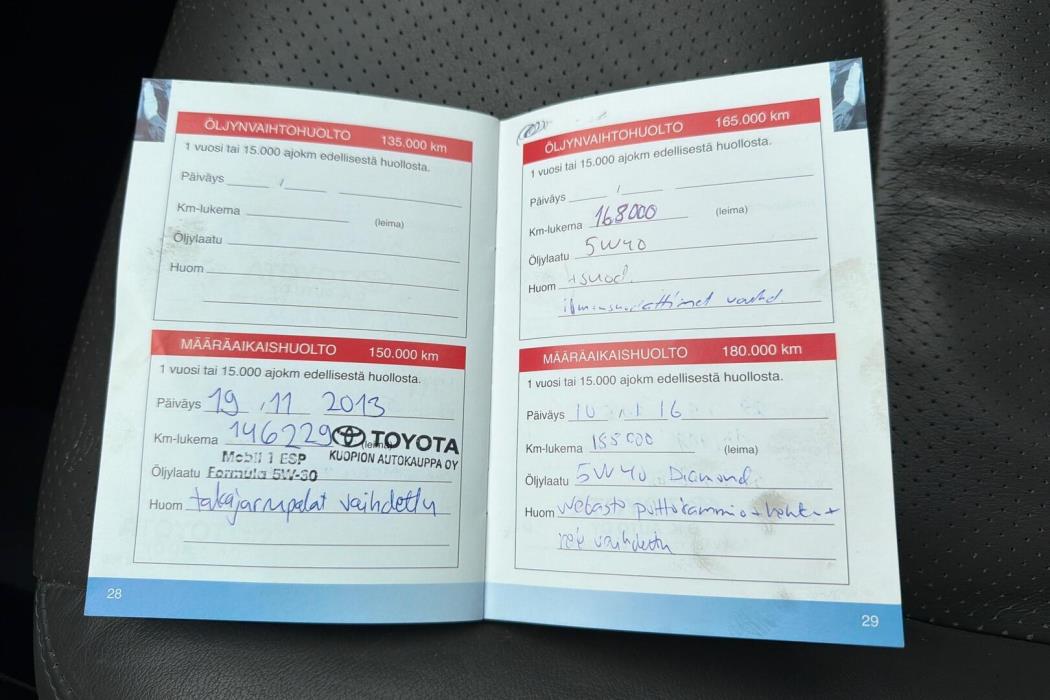 ÖLJYNVAIHTOHUOLTO 135.000 km
1 vuosi tai 15.000 ajokm edellisestä huollosta.
Päiväys /
Km-lukema (leima)
Öljylaatu
Huom
MÄÄRÄAIKAISHUOLTO 150.000 km
1 vuosi tai 15.000 ajokm edellisestä huollosta.
Päiväys 19 11 2013
Km-lukema 146229 TOYOTA
KUOPION AUTOKAUPPA OY
Mobil 1 ESP
Öljylaatu Formula 5W-30
Huom takajarrupalat vaihdettu
28
ÖLJYNVAIHTOHUOLTO 165.000 km
1 vuosi tai 15.000 ajokm edellisestä huollosta.
Päiväys /
Km-lukema 168000 (leima)
Öljylaatu 5W40
Huom +suod.
MÄÄRÄAIKAISHUOLTO 180.000 km
1 vuosi tai 15.000 ajokm edellisestä huollosta.
Päiväys 16
Km-lukema (leima)
Öljylaatu 5W40 Diamond
Huom webasto polttokammio +
vaihdettu
29